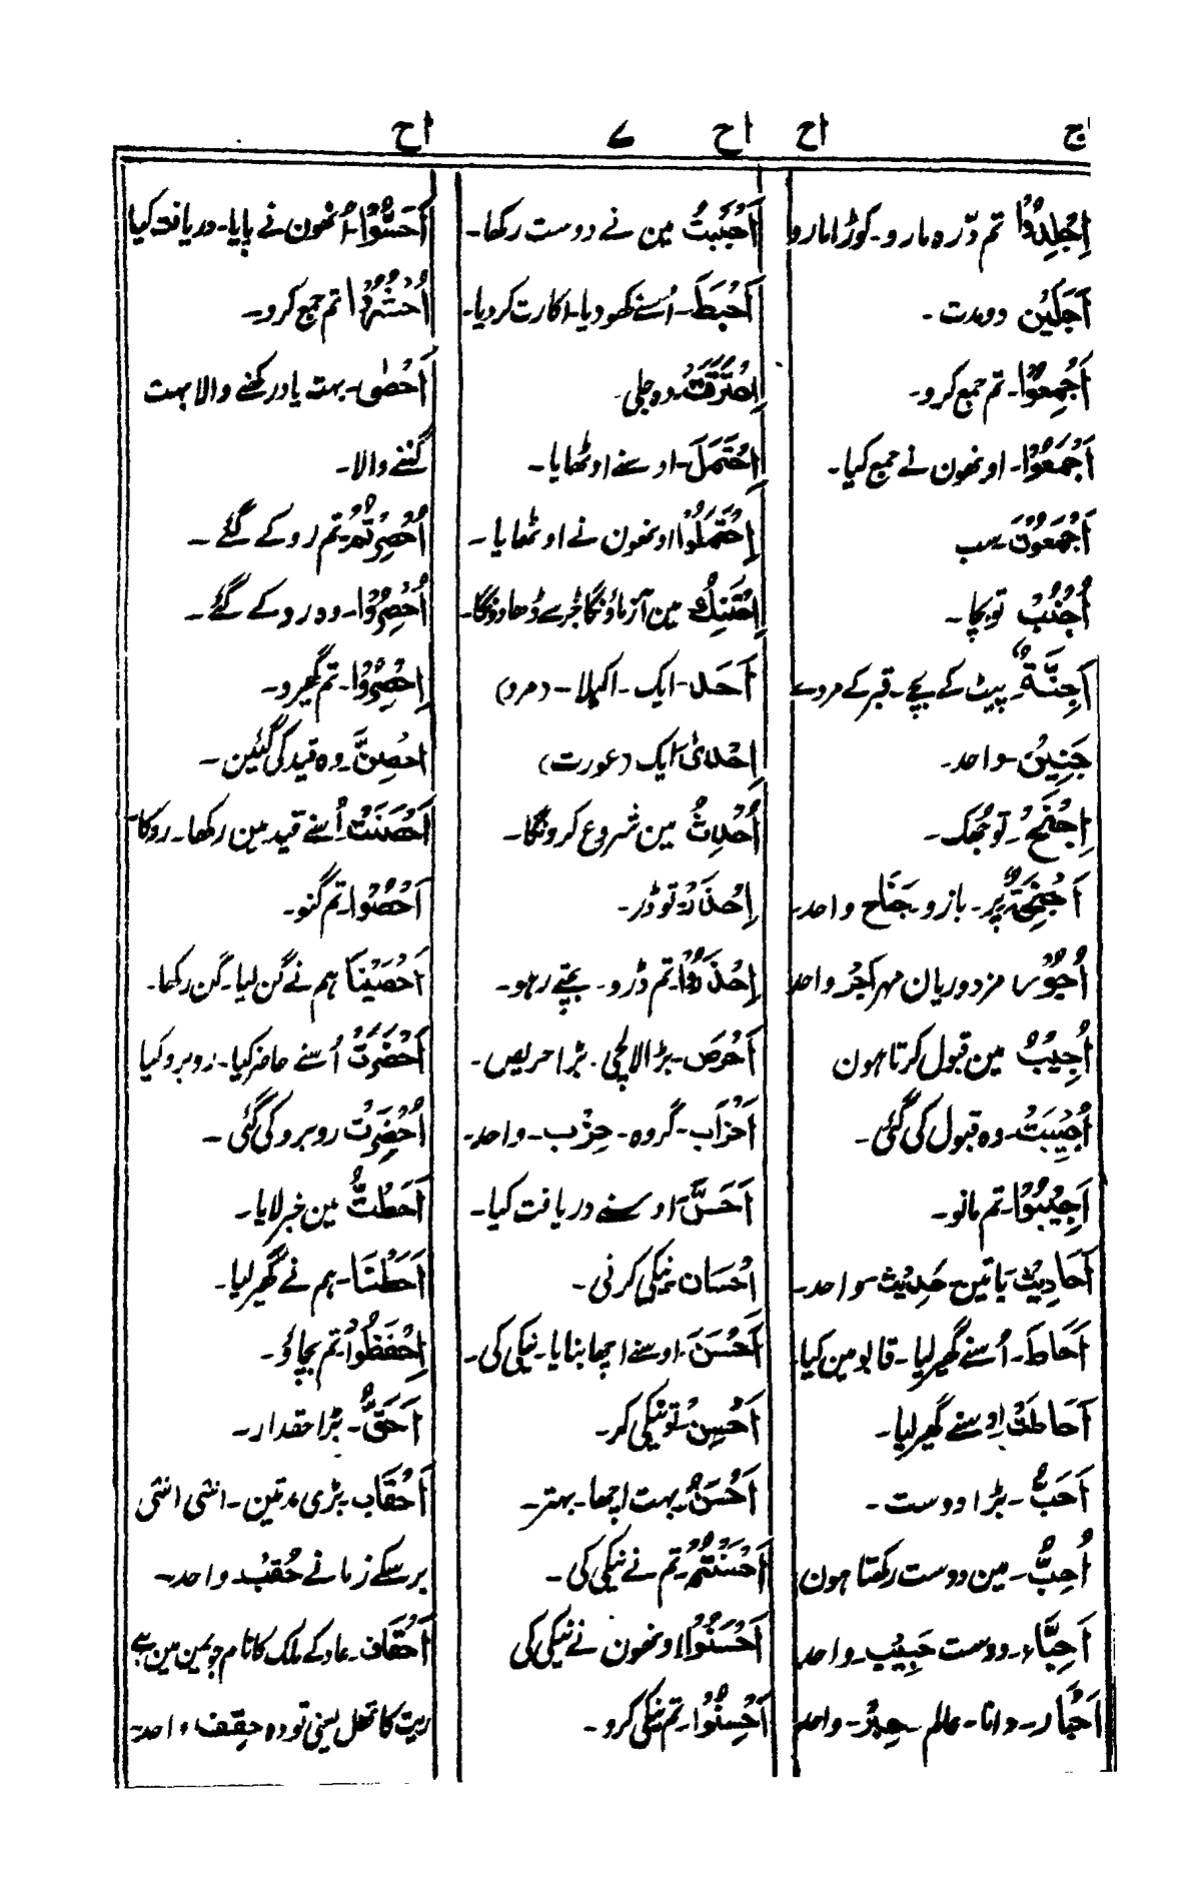 اج
اح
اح
۷
اح
اِجْلِدُوْا تم درّہ مارو۔ کوڑا مارو
اَجَلَیْنِ دو مدت۔
اَجْمِعُوْا۔ تم جمع کرو۔
اَجْمَعُوْا۔ اونھون نے جمع کیا۔
اَجْمَعُوْنَ۔ سب
اُجْنُبْ تو بچا۔
اَجِنَّۃٌ۔ پیٹ کے بچے۔ قبر کے مردے
جَنِیْنٌ۔ واحد۔
اِجْنَحْ۔ تو جھک۔
اَجْنِحَۃٌ پر۔ بازو۔ جَنَاح واحد۔
اُجُوْر مزدوریان مہر اَجْرٌ واحد
اُجِیْبُ مین قبول کرتا ہون
اُجِیْبَتْ۔ وہ قبول کی گئی۔
اَجِیْبُوْا۔ تم مانو۔
اَحَادِیْث باتین۔ حَدِیْث واحد۔
اَحَاطَ۔ اُسنے گھیر لیا۔ قابو مین کیا
اَحَاطَتْ اوسنے گھیر لیا۔
اَحَبُّ۔ بڑا دوست۔
اُحِبُّ۔ مین دوست رکھتا ہون
اَحِبَّاء۔ دوست حَبِیْب۔ واحد
اَحْبَار۔ دانا۔ عالم۔ حِبْرٌ۔ واحد
اَحْبَبْتُ مین نے دوست رکھا۔
اَحْبَطَ۔ اُسنے کھودیا۔ اکارت کردیا۔
اِحْتَرَقَتْ۔ وہ جلی۔
اِحْتَمَلَ۔ اوسنے اوٹھایا۔
اِحْتَمَلُوْا اونھون نے اوٹھایا۔
اَحَد۔ ایک۔ اکیلا۔ (مرد)
اِحْدٰی ایک (عورت)
اُحْدِثُ مین شروع کرونگا۔
اِحْذَرْ۔ تو ڈر۔
اِحْذَرُوْا۔ تم ڈرو۔ بچتے رہو۔
اَحْرَصَ۔ بڑا لالچی۔ بڑا حریص۔
اَحْزَاب۔ گروہ۔ حِزْب۔ واحد۔
اَحَسَّ۔ اوسنے دریافت کیا۔
اِحْسَان نیکی کرنی۔
اَحْسَنَ۔ اوسنے اچھا بنایا۔ نیکی کی۔
اَحْسِنْ۔ تو نیکی کر۔
اَحْسَنُ۔ بہت اچھا۔ بہتر۔
اَحْسَنْتُمْ۔ تم نے نیکی کی۔
اَحْسَنُوْا۔ اونھون نے نیکی کی
اَحْسِنُوْا۔ تم نیکی کرو۔
اَحَسُّوْا۔ اُنھون نے پایا۔ دریافت کیا
اُحْشُرُوْا تم جمع کرو۔
اَحْصٰی۔ بہت یاد رکھنے والا بہت
گننے والا۔
اُحْصِرْتُمْ۔ تم روکے گئے۔
اُحْصِرُوْا۔ وہ روکے گئے۔
اُحْصُرُوْا۔ تم گھیرو۔
اُحْصِنَّ۔ وہ قید کی گئین۔
اَحْصَنَتْ اُسنے قید مین رکھا۔ روکا۔
اَحْصُوْا۔ تم گنو۔
اَحْصَیْنَا ہم نے گن لیا۔ گن رکھا۔
اَحْضَرَتْ اُسنے حاضر کیا۔ روبرو کیا
اُحْضِرَتْ روبرو کی گئی۔
اَحَطْتُّ مین خبر لایا۔
اَحَطْنَا۔ ہم نے گھیر لیا۔
اِحْفَظُوْا۔ تم بچاؤ۔
اَحَقُّ۔ بڑا حقدار۔
اَحْقَاب۔ بڑی مدتین۔ اسّی اسّی
برسکے زمانے حُقْبٌ واحد۔
اَحْقَاف۔ عاد کے ملک کا نام جو یمن مین ہے
ریت کا تھل یعنی تودہ حِقْف واحد۔